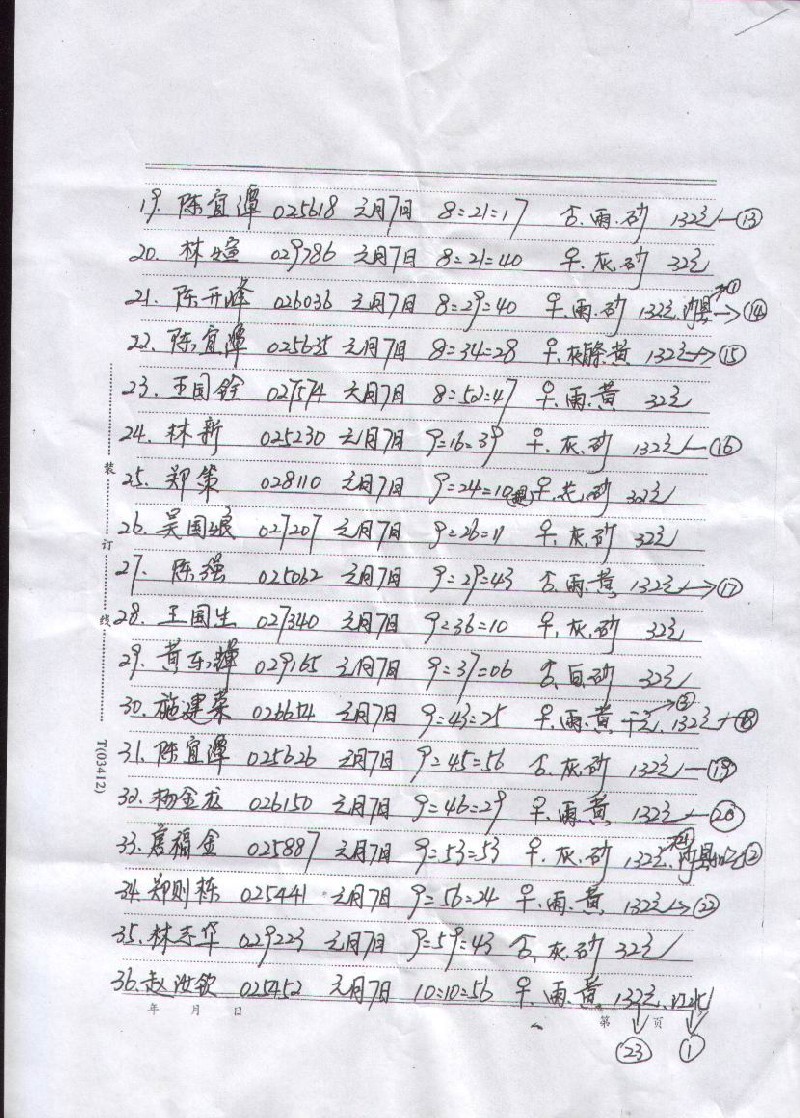 19. 陈宜潭 025618 元月7日 8=21=17 合.雨.砂 132元—⑬
20. 林煊 029786 元月7日 8=21=40 平.灰.砂 32元
21. 陈开峰 026036 元月7日 8=29=40 平.雨.砂 132元. →⑭
22. 陈宜潭 025635 元月7日 8=34=28 平.灰 黄 132元→⑮
23. 王国铨 027574 元月7日 8=52=47 平.雨.黄 32元
24. 林新 025230 元月7日 9=16=39 平.灰.砂 132元—⑯
25. 郑策 028110 元月7日 9=24=10 平.花.砂 32元
26. 吴国 027207 元月7日 9=26=11 平.灰.砂 32元
27. 陈强 025062 元月7日 9=29=43 合.雨.黄 132元→⑰
28. 王国生 027340 元月7日 9=36=10 平.灰.砂 32元
29. 黄东辉 029165 元月7日 9=37=06 合.白.砂 32元
30. 施建荣 026654 元月7日 9=43=25 平.雨.黄 132元→⑱
31. 陈宜潭 025626 元月7日 9=45=56 合.灰.砂 132元—⑲
32. 杨金龙 026150 元月7日 9=46=29 平.雨.黄 132元—⑳
33. 詹福金 025887 元月7日 9=53=53 平.灰.砂 132元.
34. 郑则栋 025441 元月7日 9=56=24 平.雨.黄 132元→㉒
35. 林志华 029223 元月7日 9=59=43 合.灰.砂 32元
36. 赵汝钦 025452 元月7日 10=10=56 平.雨.黄 132元.江北
年 月 日 第 页
㉓ ①
装
订
线
T(03412)